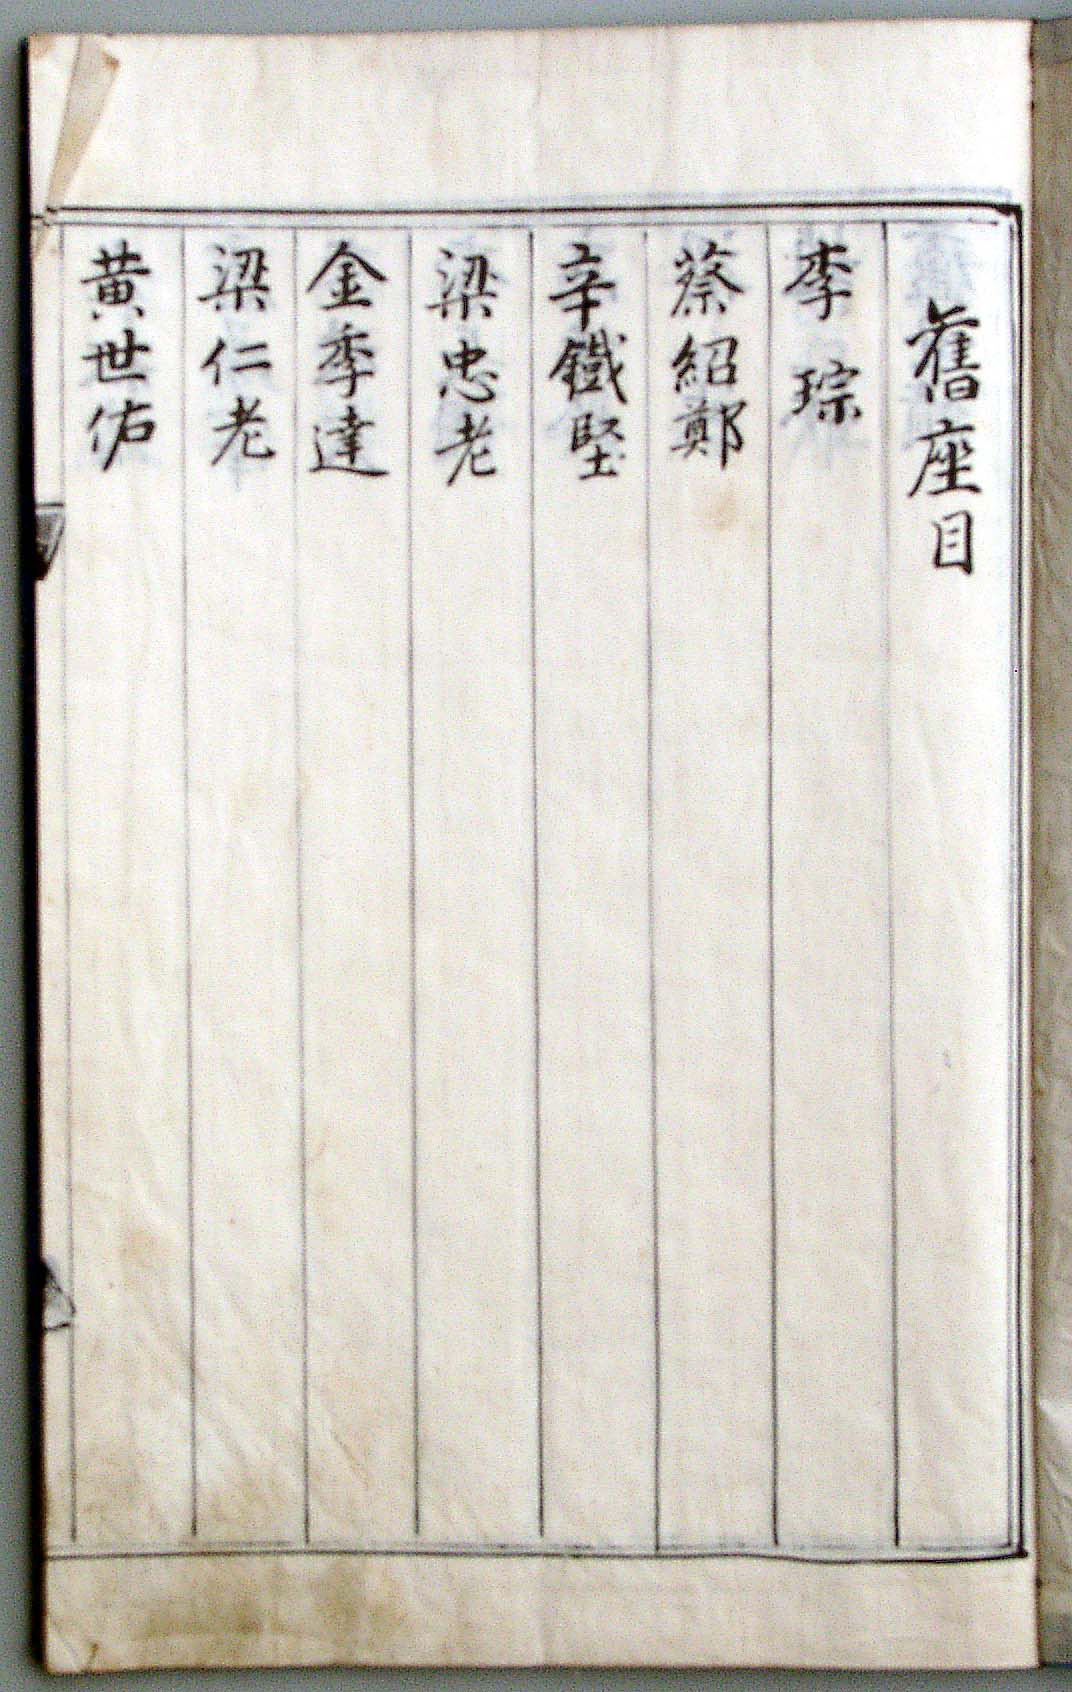 舊座目
李琮
蔡紹鄭
辛鐵堅
梁忠老
金季達
梁仁老
黄世佑